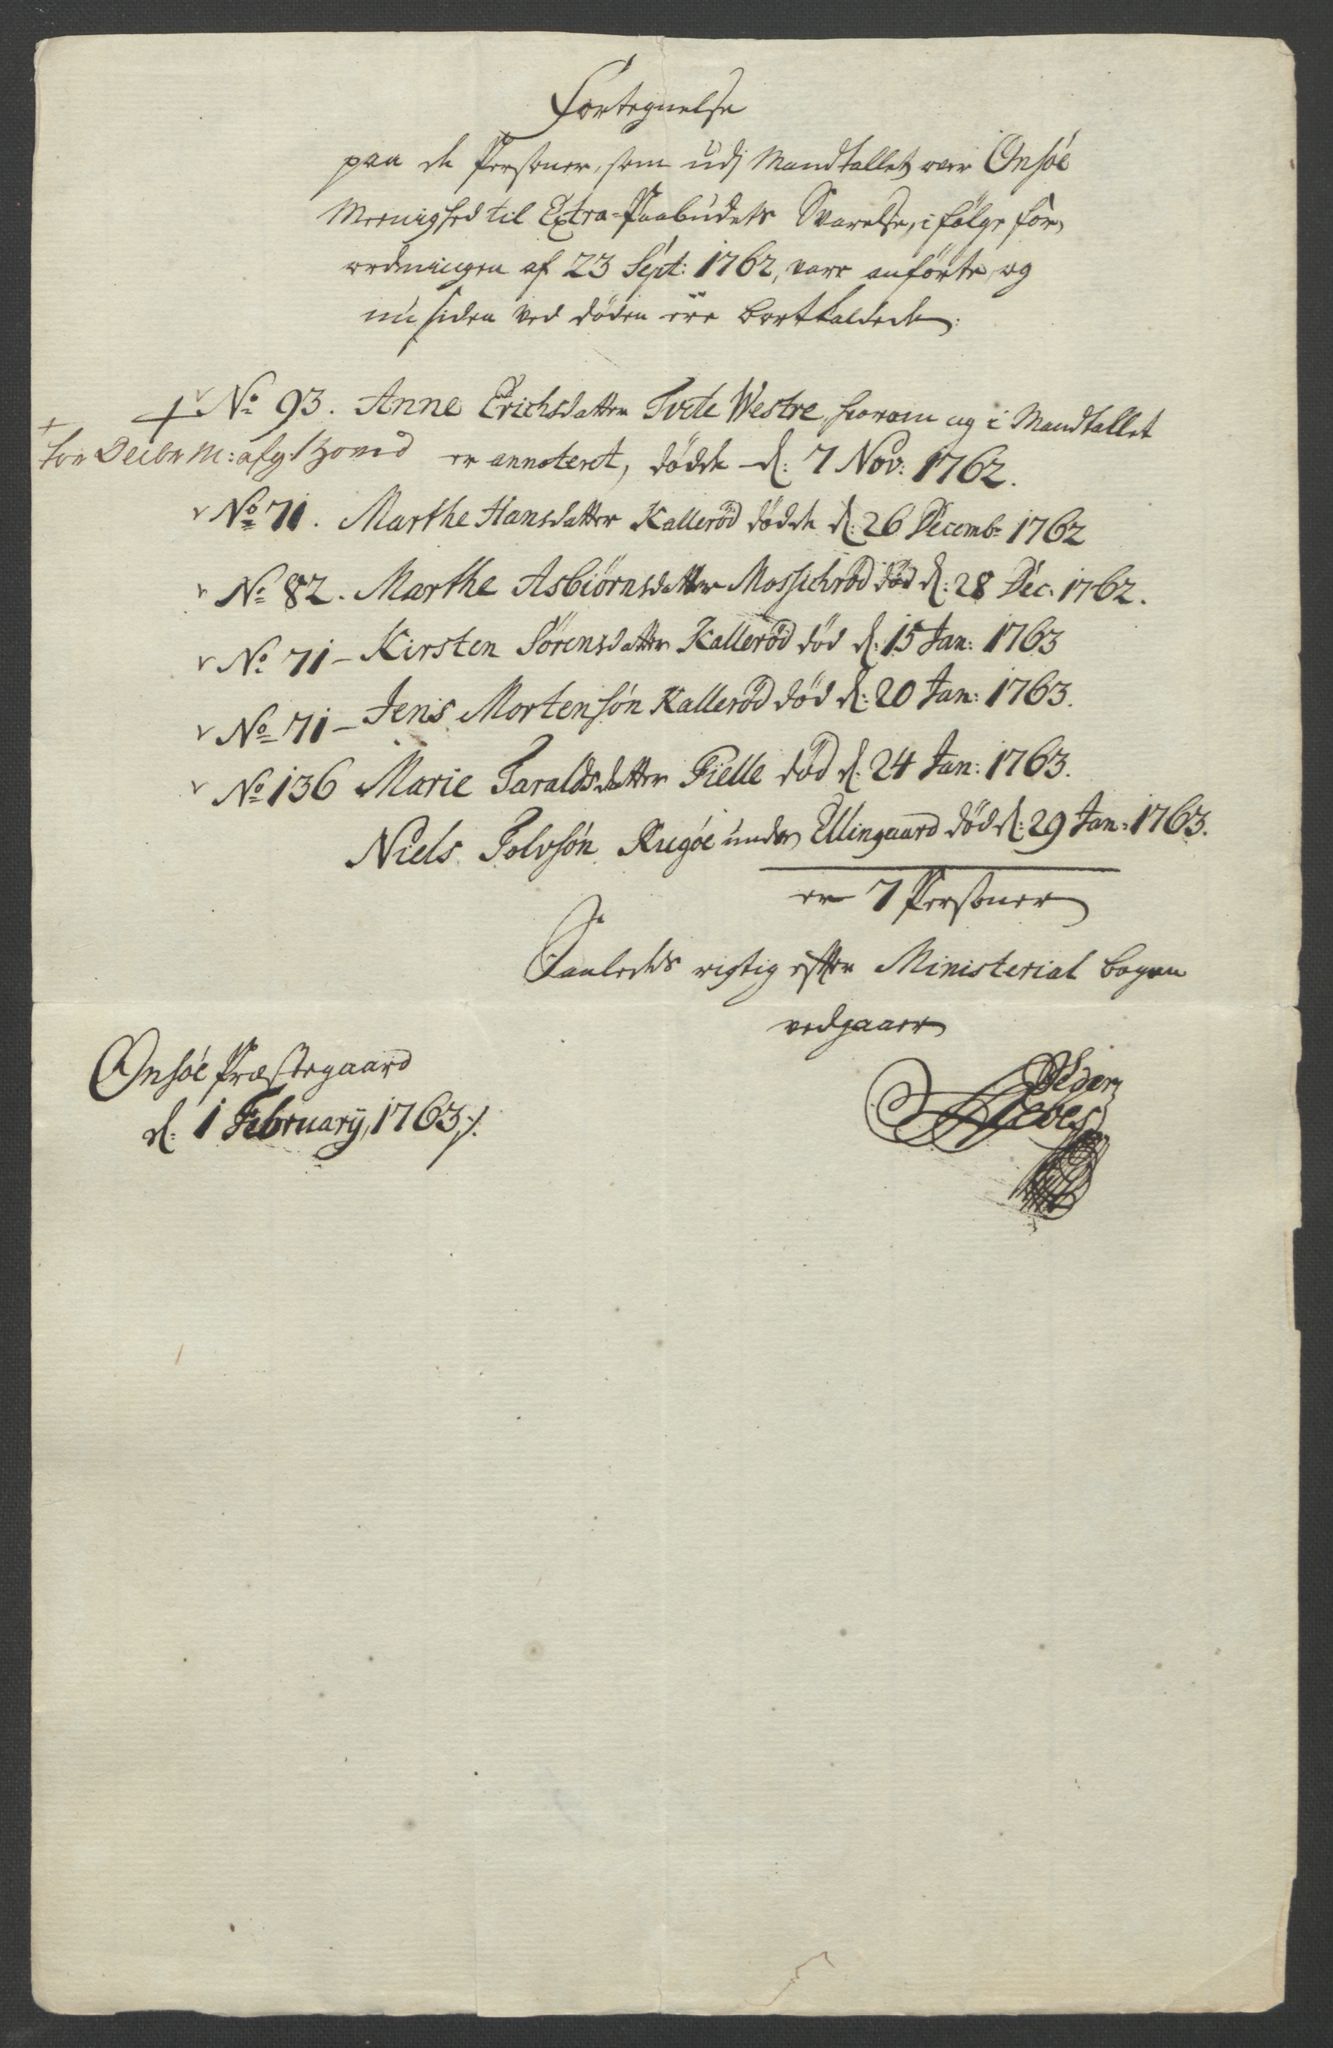 Fortegnelse
paa de Personer, som udj Mandtallet over Onsöe
Meenighed til Extra-Paabudets Svarelse, i følge For
ordningen af 23 Sept: 1762, vare anførte, og
nu siden ved døden ere bortkaldede.
No 93. Anne Erichsdatter Tvete Westre, hvorom og i Mandtallet
er annoteret, døde d: 7 Nov: 1762.
for Decbr M: afg. 1 hoved
No 71. Marthe Hansdatter Kalleröd døde d: 26 Decemb: 1762
No 82. Marthe Asbiörnsdatter Mossichröd död d: 28 Dec: 1762.
No 71 - Kirsten Sörensdatter Kalleröd död d: 15 Jan: 1763
No 71 - Jens Mortensön Kalleröd död d: 20 Jan: 1763.
No 136 Marie Taraldsdatter Fielle död d: 24 Jan: 1763.
Niels Tolvsön Rugöe under Ellingaard död d: 29 Jan: 1763.
er 7 Personer
Saaledes rigtig efter Ministerial bogen
vedgaaer
Onsöe Præstegaard
d: 1 February, 1763 ./.
Peder